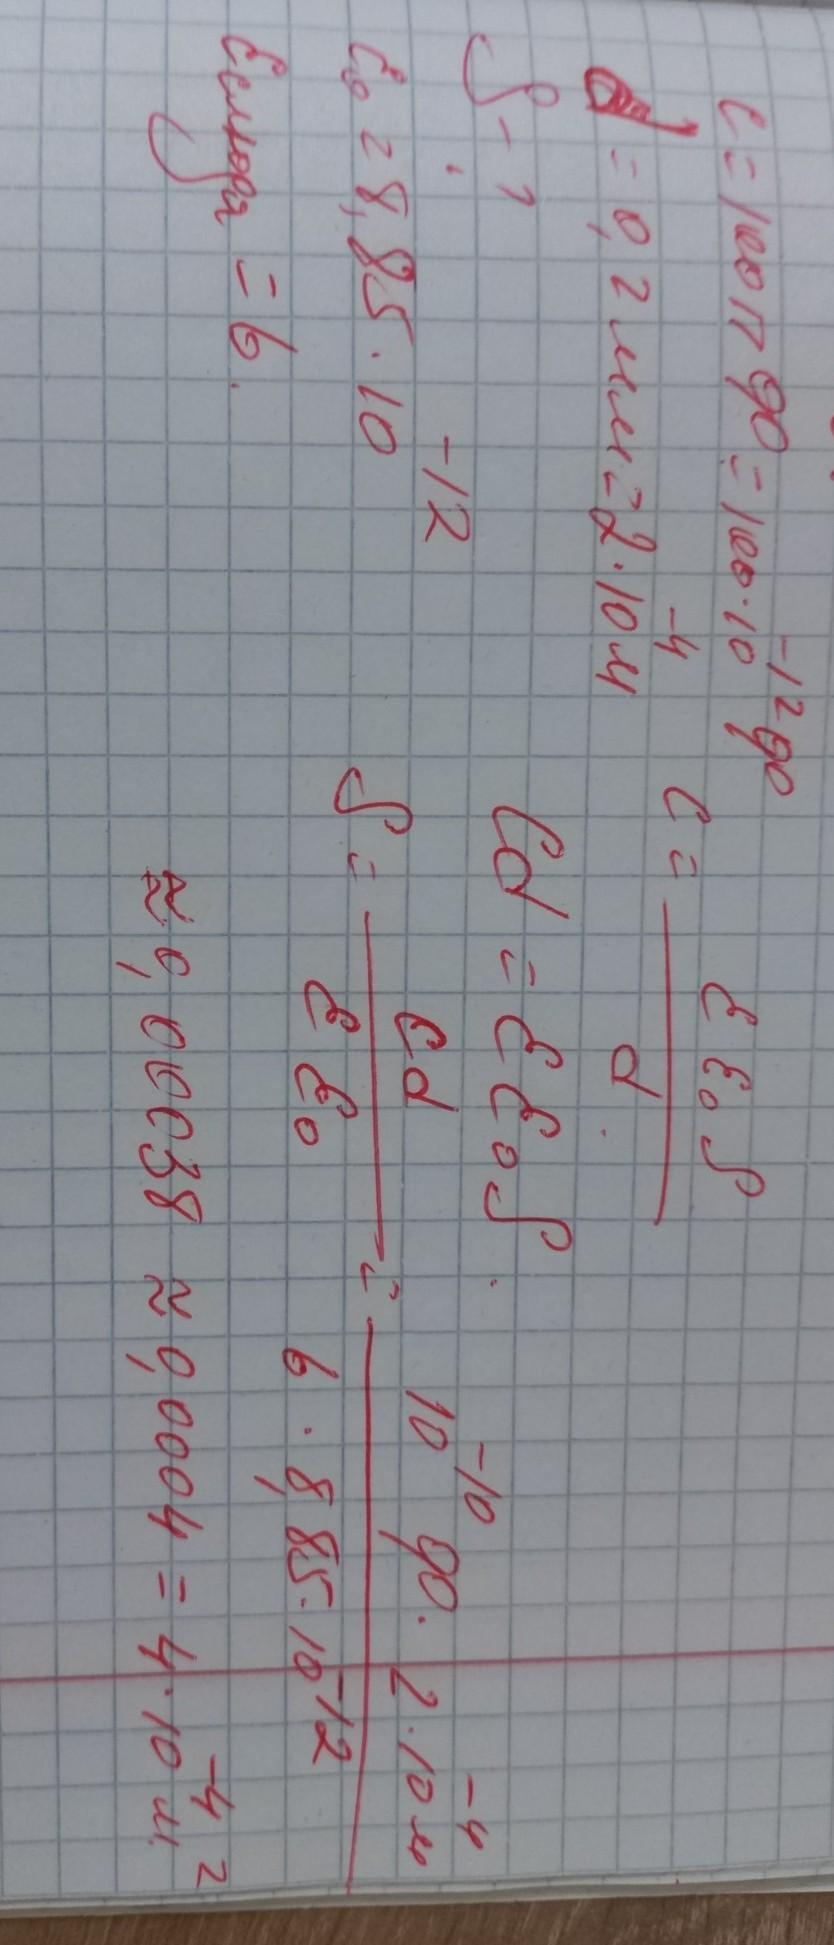 C = 100 п Ф = 100 · 10⁻¹² Ф
d = 0,2 мм = 2 · 10⁻⁴ м
S - ?
ε₀ = 8,85 · 10⁻¹²
ε слюда = 6.
C = εε₀S / d.
Cd = εε₀S.
S = Cd / εε₀ = 10⁻¹⁰ Ф · 2 · 10⁻⁴ м / 6 · 8,85 · 10⁻¹²
≈ 0,00038 ≈ 0,0004 = 4 · 10⁻⁴ м²